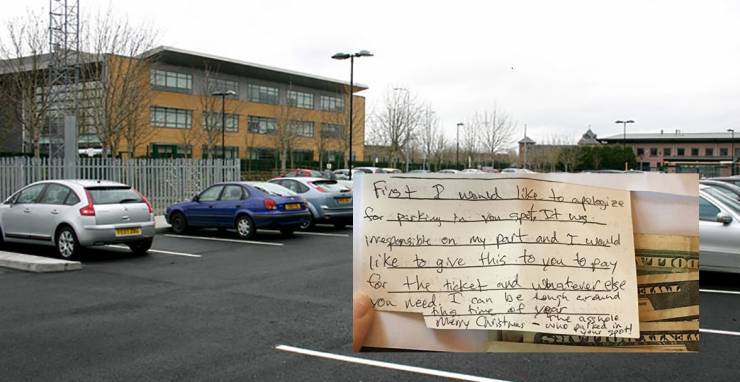 First I would like to apologize
for parking in you spot, It was
irresponsible on my part and I would
like to give this to you to pay
for the ticket and whatever else
you need, I can be tough around
the time of year
Merry Christmas - The asshole
who parked in
your spot!